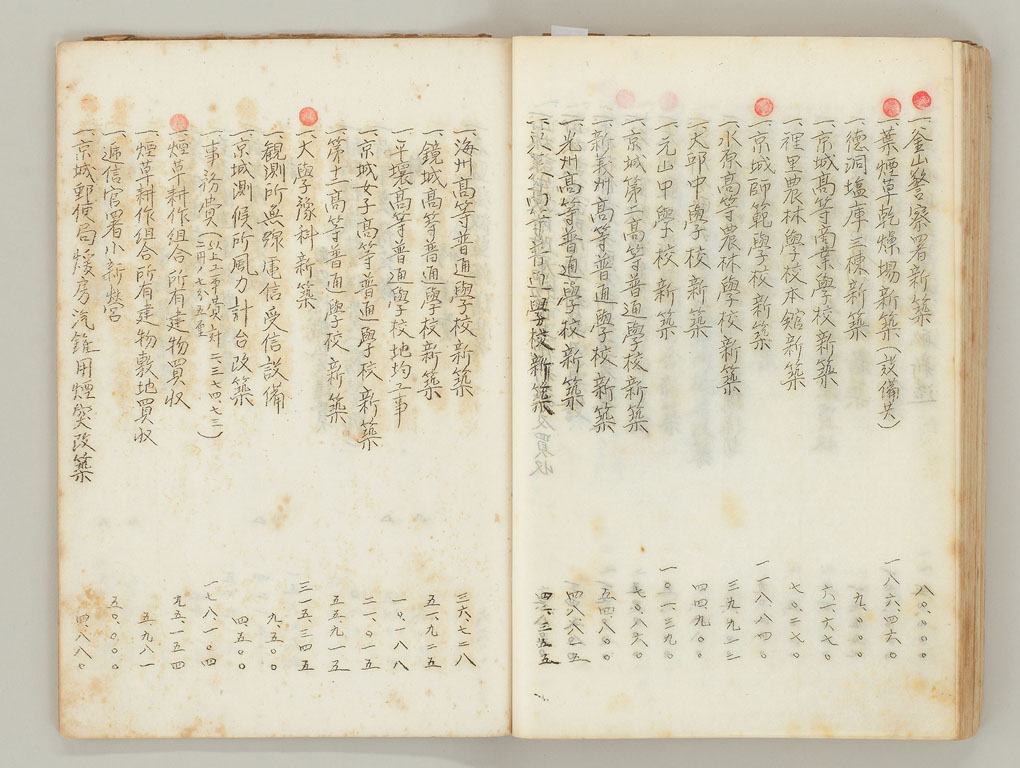 一、釜山警察署新築 八〇、〇〇〇
一、葉煙草乾燥場新築(設備共) 一八六、四六〇
一、德洞塩庫三棟新築 九、〇〇〇
一、京城高等商業學校新築 六一、六六七
一、裡里農林學校本館新築 七〇、二七〇
一、京城師範學校新築 一一八、八四〇
一、水原高等農林學校新築 三九、九二三
一、大邱中學校新築 四四、九〇〇
一、元山中學校新築 一〇一、三九〇
一、京城第二高等普通學校新築 七〇、八六〇
一、新義州高等普通學校新築 五四、八〇〇
一、光州高等普通學校新築 四八、八一五
高等普通學校新築 四六、三五五
一、海州高等普通學校新築 三六、七二八
一、鏡城高等普通學校新築 五一、九二五
一、平壤高等普通學校地均工事 一〇、一八八
一、京城女子高等普通學校新築 二一、〇一五
一、第十一高等普通學校新築 五五、九一五
一、大學豫科新築 三一五、三四五
一、観測所無線電信受信設備 九、五〇〇
一、京城測候所風力計台改築 四五〇〇
一、事務費(以上工事費ニ対 二、三三七、四七三) 一七八、一〇四
二円ノ七分五厘
一、煙草耕作組合所有建物買収 九五、一五四
一、煙草耕作組合所有建物敷地買収 五、九八一
一、逓信官署小新営 五〇、〇〇〇
一、京城郵便局煖房汽鑵用煙突改築 四、八八〇